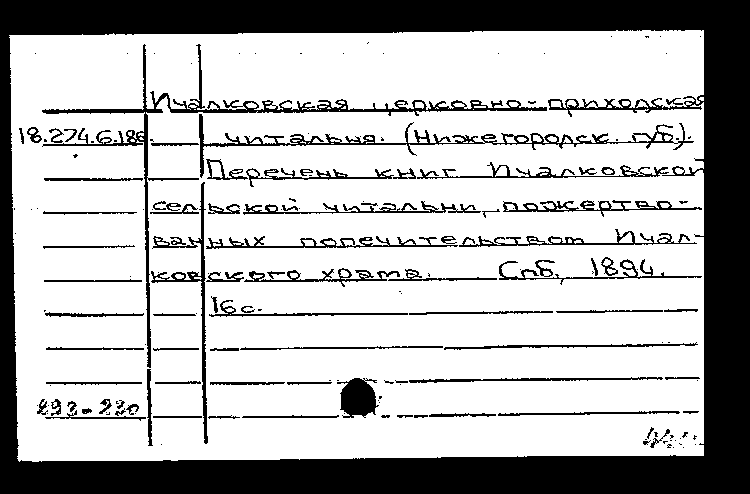 Ичалковская церковно-приходская
18.274.6.186. читальня. (Нижегородск. губ.).
Перечень книг Ичалковской
сельской читальни, пожертво-
ванных попечительством Ичал-
ковского храма. Спб., 1894.
16 с.
293-230